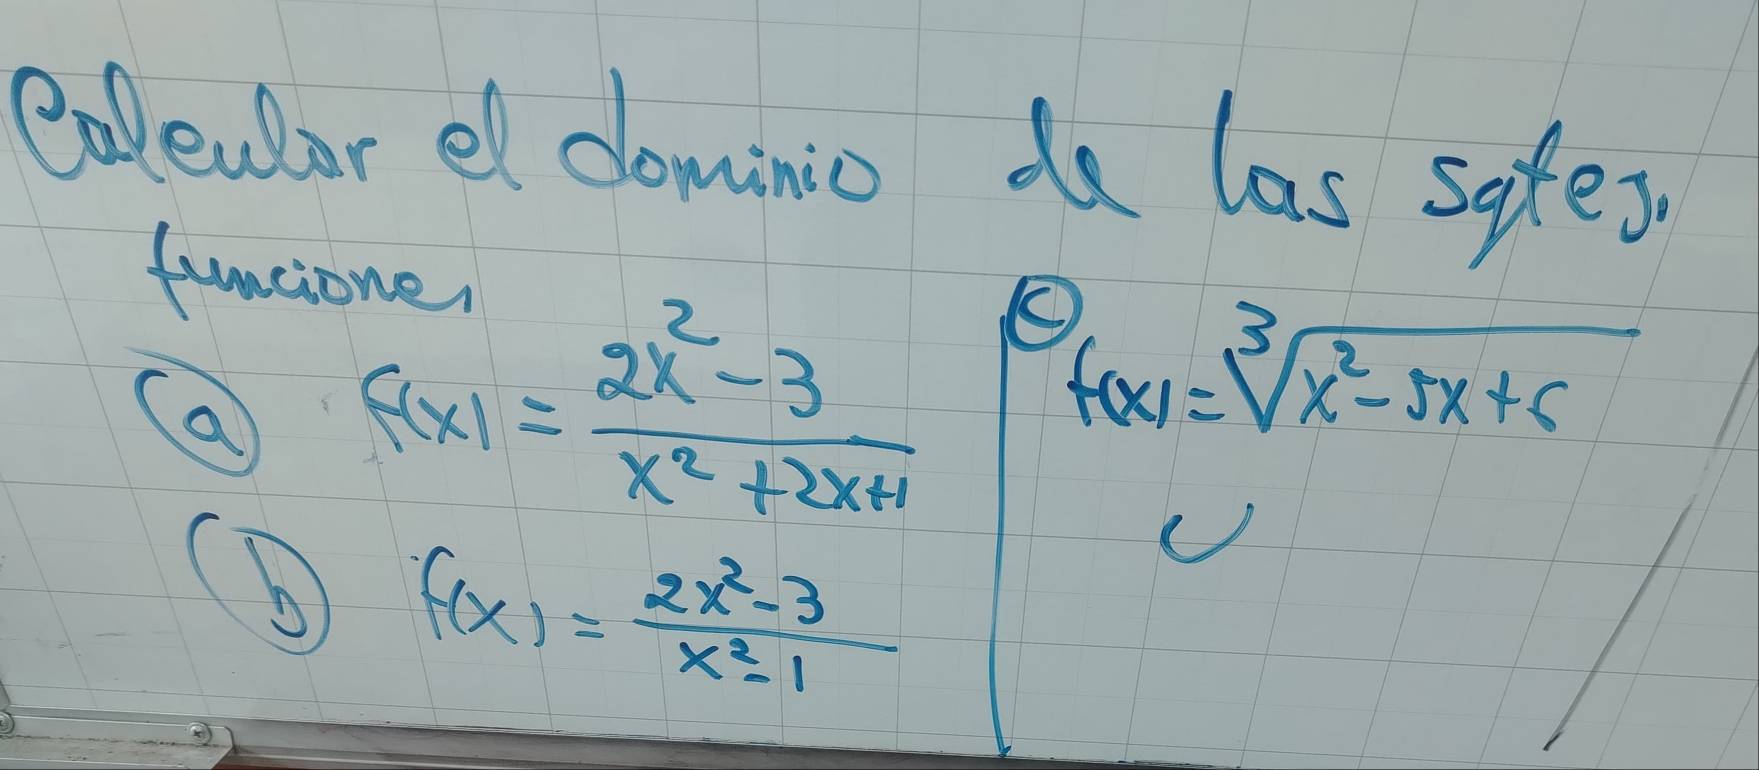 Calcular el dominio de las sqtes.
funciones
(a) f(x) = (2x² - 3)/(x² + 2x + 1)
(b) f(x) = (2x² - 3)/(x² - 1)
(c) f(x) = ∛(x² - 5x + 6)